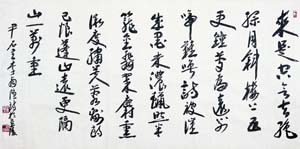 來是空言去絕
踪月斜樓上五
更鐘夢為遠別
啼難喚書被催
成墨未濃蠟照半
籠金翡翠麝熏
微度繡芙蓉劉郎
已恨蓬山遠更隔
山一萬重